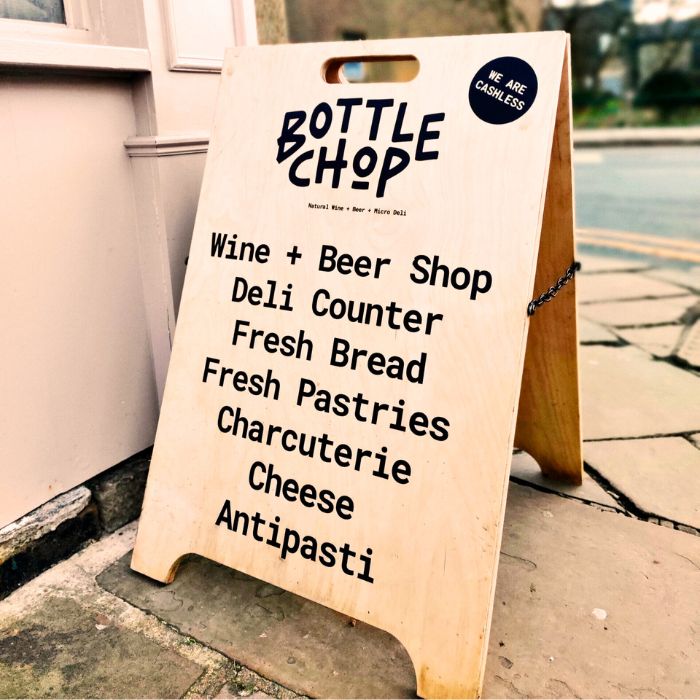 WE ARE
CASHLESS
BOTTLE
CHOP
Natural Wine + Beer + Micro Deli
Wine + Beer Shop
Deli Counter
Fresh Bread
Fresh Pastries
Charcuterie
Cheese
Antipasti